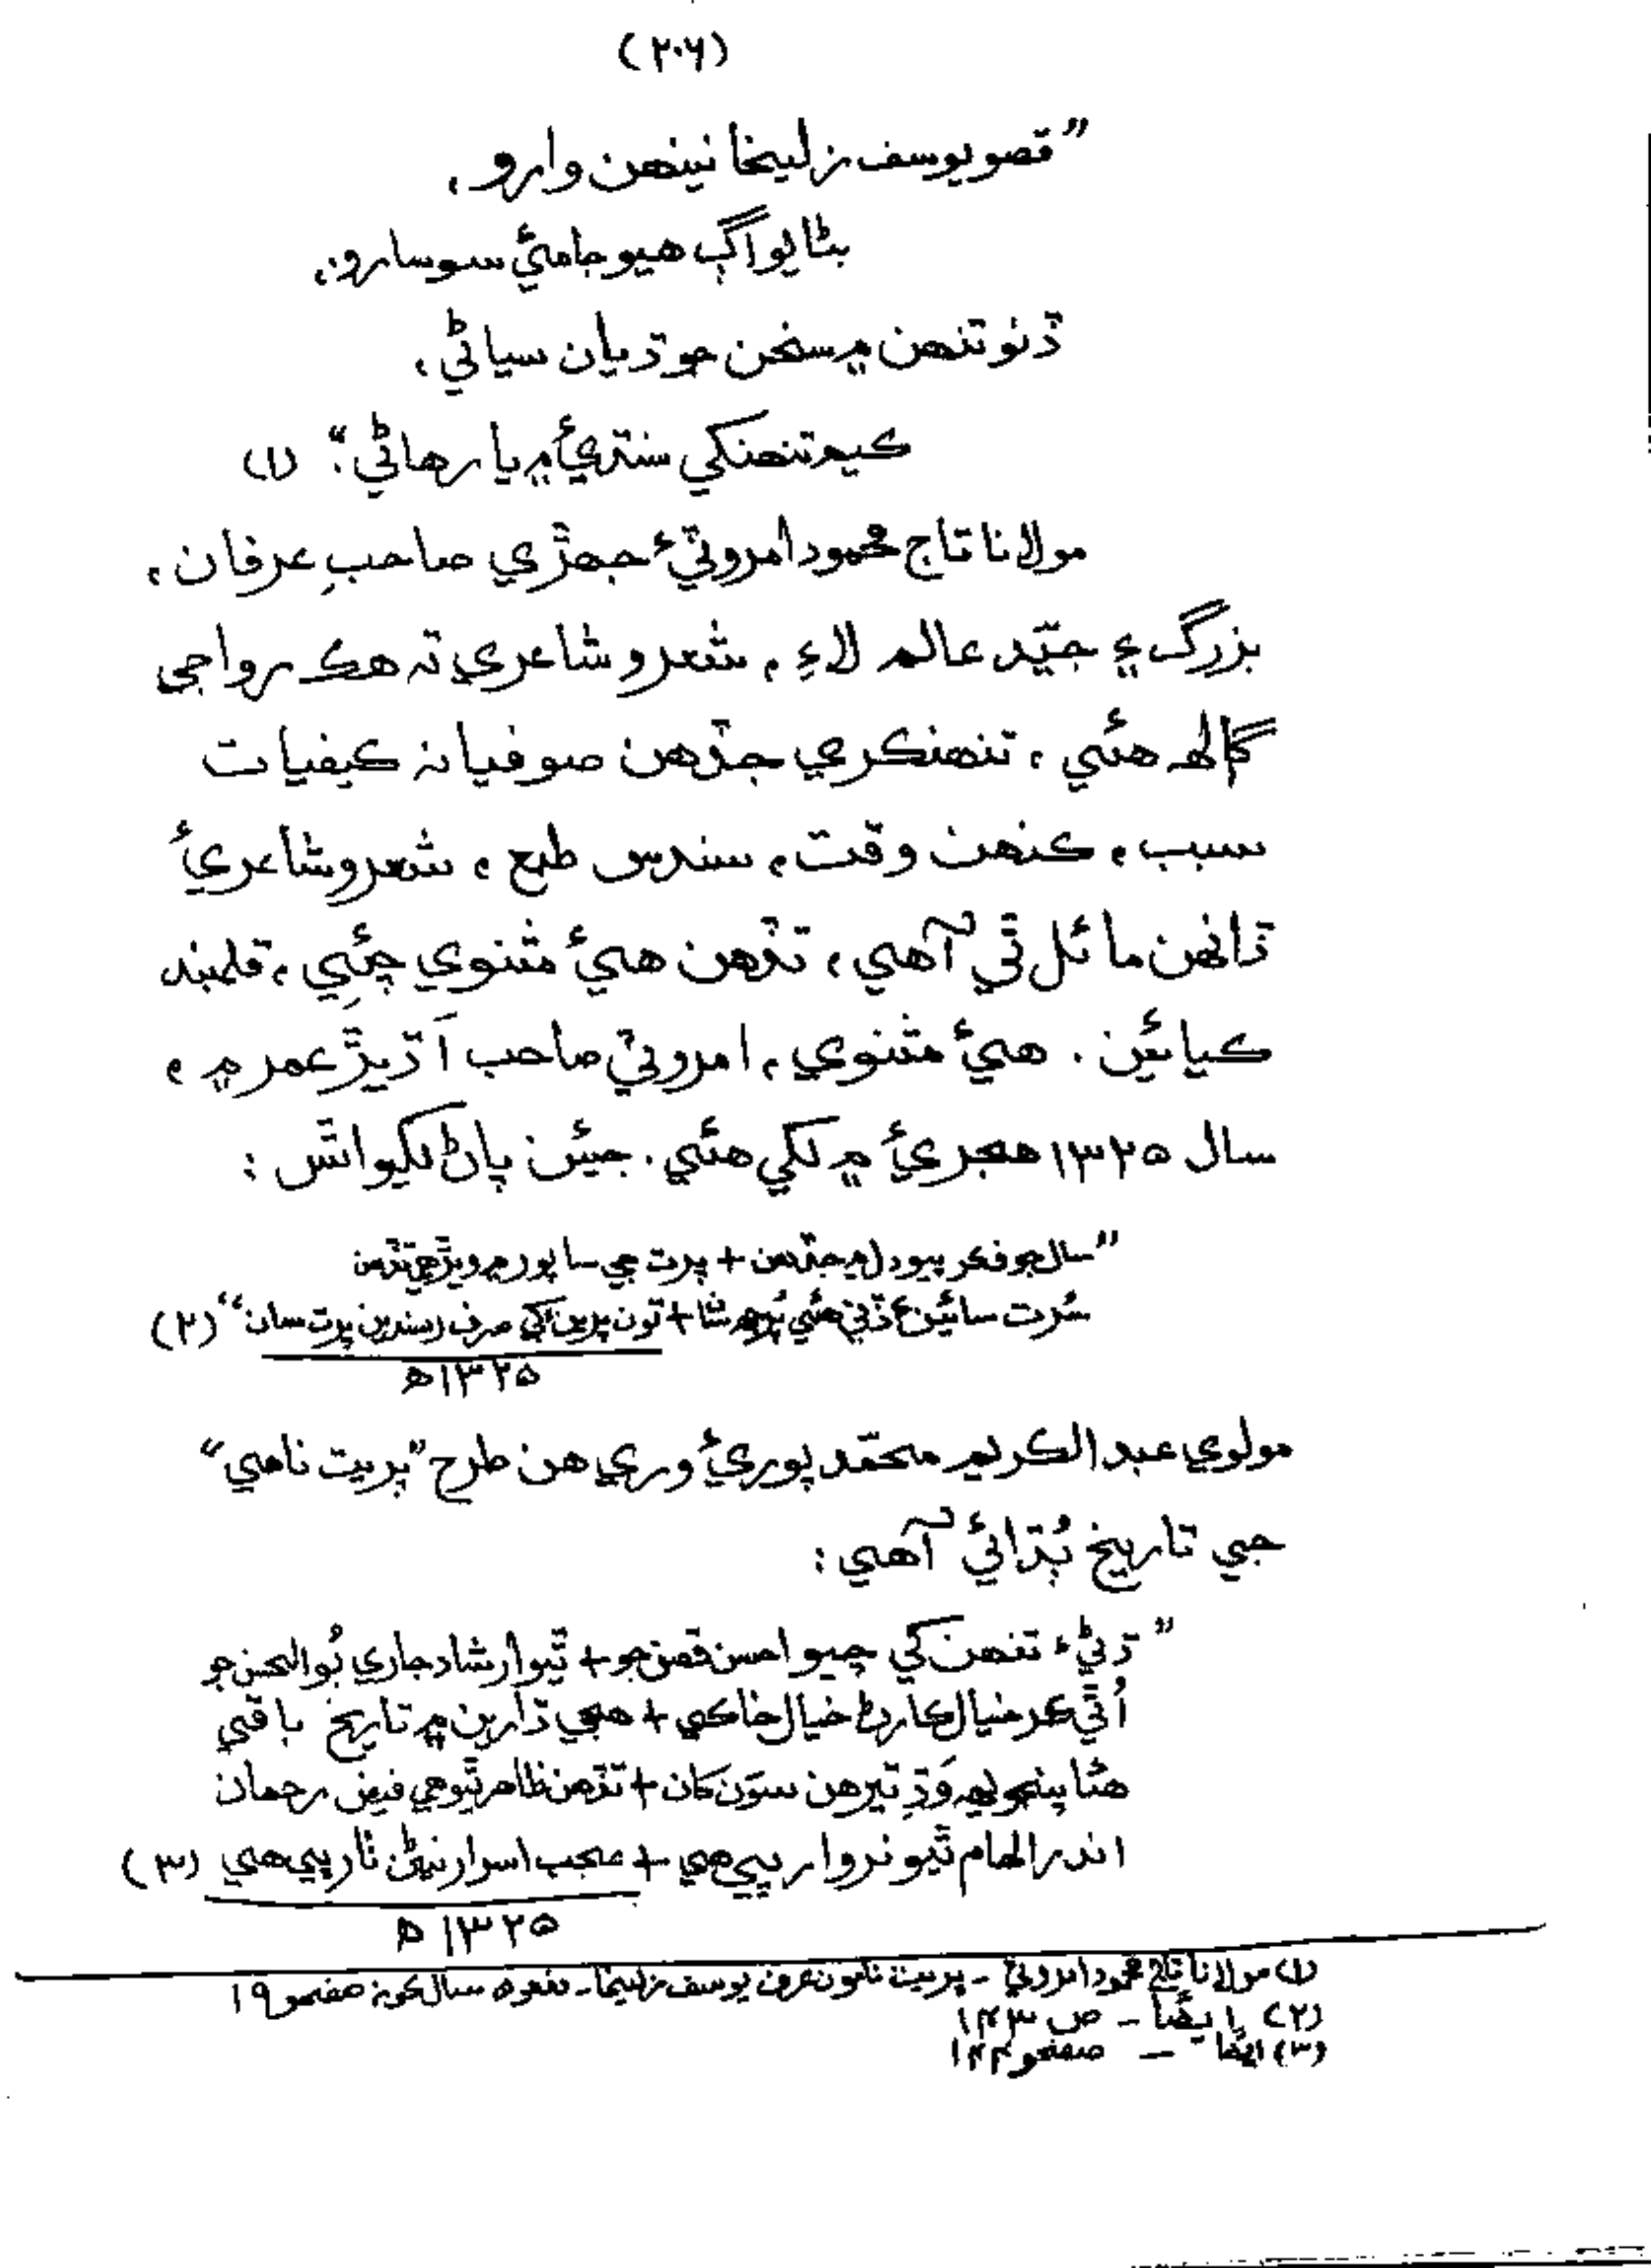 (٢٠٦)
”قصو يوسف زليخا نينهن وارو،
بڻايو اڳ هيو جاميءَ سو سارو،
ڏنو تنهن ۾ سخن جو ڏيان سياڻي،
ڪيم تنهنکي سنڌيءَ ۾ يار هاڻي.“ (١)
مولانا تاج محمود امروٽيءَ جهڙي صاحبِ عرفان،
بزرگ ۽ جيّد عالم لاءِ، شعر و شاعري تہ هڪ رواجي
ڳالھ هئي، تنهنڪري جڏهن صوفيانہ ڪيفيات
سبب، ڪنهن وقت، سندس طبع، شعر و شاعريءَ
ڏانهن مائل ٿي آهي، تڏهن هيءَ مثنوي چئي، قلمبند
ڪيائين. هيءَ مثنوي، امروٽي صاحب اَڌيڙ عمر ۾،
سال ١٣٢٥ هجريءَ ۾ لکي هئي. جيئن پاڻ لکيو اٿس:
”سال جو فڪر پيو دل ۾ جڏهن + پرت جي سا پور ۾ ويڙهي تڏهن
سُرت سائينءَ ڏني هئي ثنا + تون پرين کي صرف پرت سان“ (٢)
١٣٢٥ھ
مولوي عبدالڪريم محمّد پوريءَ وري هن طرح ”پريت نامي“
جي تاريخ ٻُڌائي آهي:
”ڌڻيءَ تنهن کي چيو احسن قصن جو + ٿيو ارشاد جاري بُوالحسن جو
اُٿي ڪر خيال ڪارڻ خيال خاڪي + هجي ڌارين ۾ تاريخ باقي
هئا پنجويھ وَڌِ تيرهن سوَن کان + تڏهن ظاهر ٿيو هي فيض رحمان
اندر الهام ٿيو نروار پي هي + عجب اسرار نيڻن ٺار پي هي (٣)
١٣٢٥ھ
(١) مولانا تاج محمود امروٽي – پريت نامون عرف يوسف زليخا – سال ڪونہ صفحو ١٩
(٢) ايضًا – ص ١٤٣
(٣) ايضًا – صفحو ١٤٤